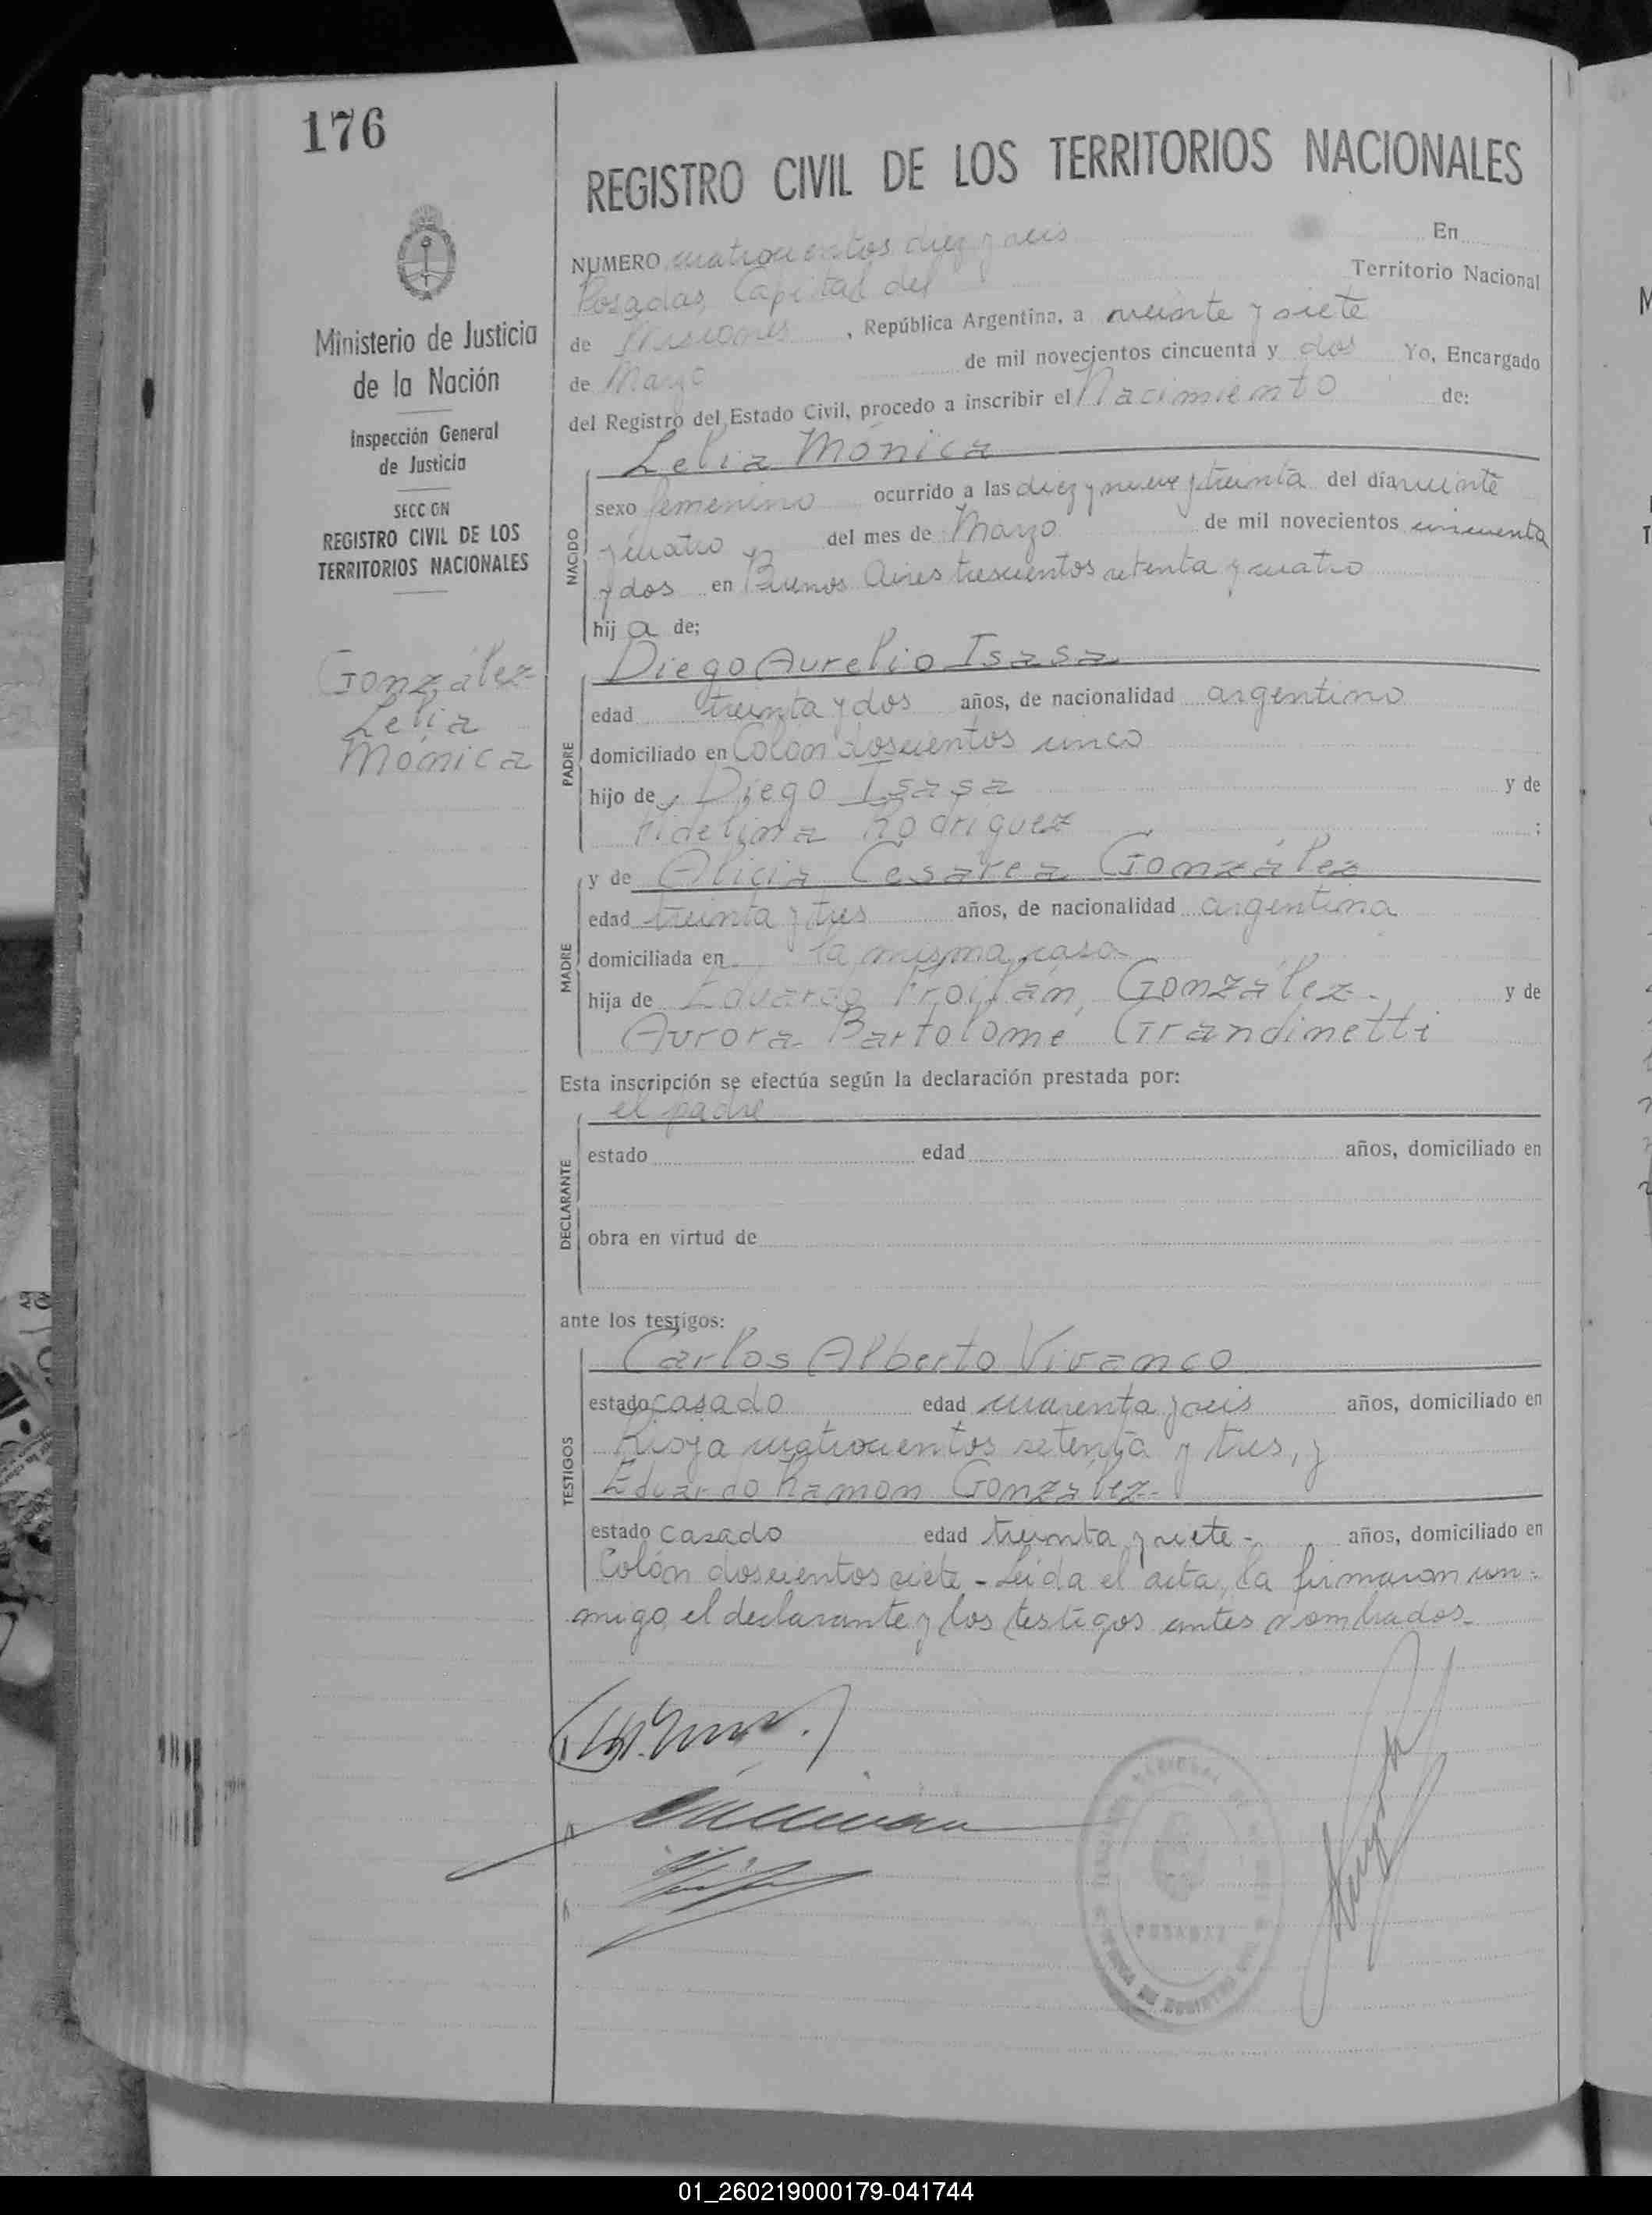 176
REGISTRO CIVIL DE LOS TERRITORIOS NACIONALES
Ministerio de Justicia
de la Nación
Inspección General
de Justicia
SECCION
REGISTRO CIVIL DE LOS
TERRITORIOS NACIONALES
González
Lelia
Mónica
NUMERO cuatrocientos diez y seis En
Posadas, Capital del Territorio Nacional
de Misiones, República Argentina, a veinte y siete
de Marzo de mil novecientos cincuenta y dos Yo, Encargado
del Registro del Estado Civil, procedo a inscribir el Nacimiento de:
Lelia Mónica
NACIDO
sexo femenino ocurrido a las diez y nueve y treinta del día veinte
y cuatro del mes de Marzo de mil novecientos cincuenta
y dos en Buenos Aires trescientos setenta y cuatro
hij a de;
Diego Aurelio Isasa
PADRE
edad treinta y dos años, de nacionalidad argentino
domiciliado en Colon doscientos cinco
hijo de Diego Isasa y de
Fidelina Rodríguez ;
y de Alicia Cesárea González
MADRE
edad treinta y tres años, de nacionalidad argentina
domiciliada en la misma casa
hija de Eduardo Froilán González - y de
Aurora Bartolomé Grandinetti
Esta inscripción se efectúa según la declaración prestada por:
el padre
DECLARANTE
estado edad años, domiciliado en
obra en virtud de
ante los testigos:
Carlos Alberto Vivanco
TESTIGOS
estado casado edad cuarenta y seis años, domiciliado en
Rioja cuatrocientos setenta y tres, y
Eduardo Ramon González-
estado casado edad treinta y siete - años, domiciliado en
Colón doscientos siete - Leida el acta, la firmaron con-
migo, el declarante y los testigos antes nombrados-
POSADAS
01_260219000179-041744